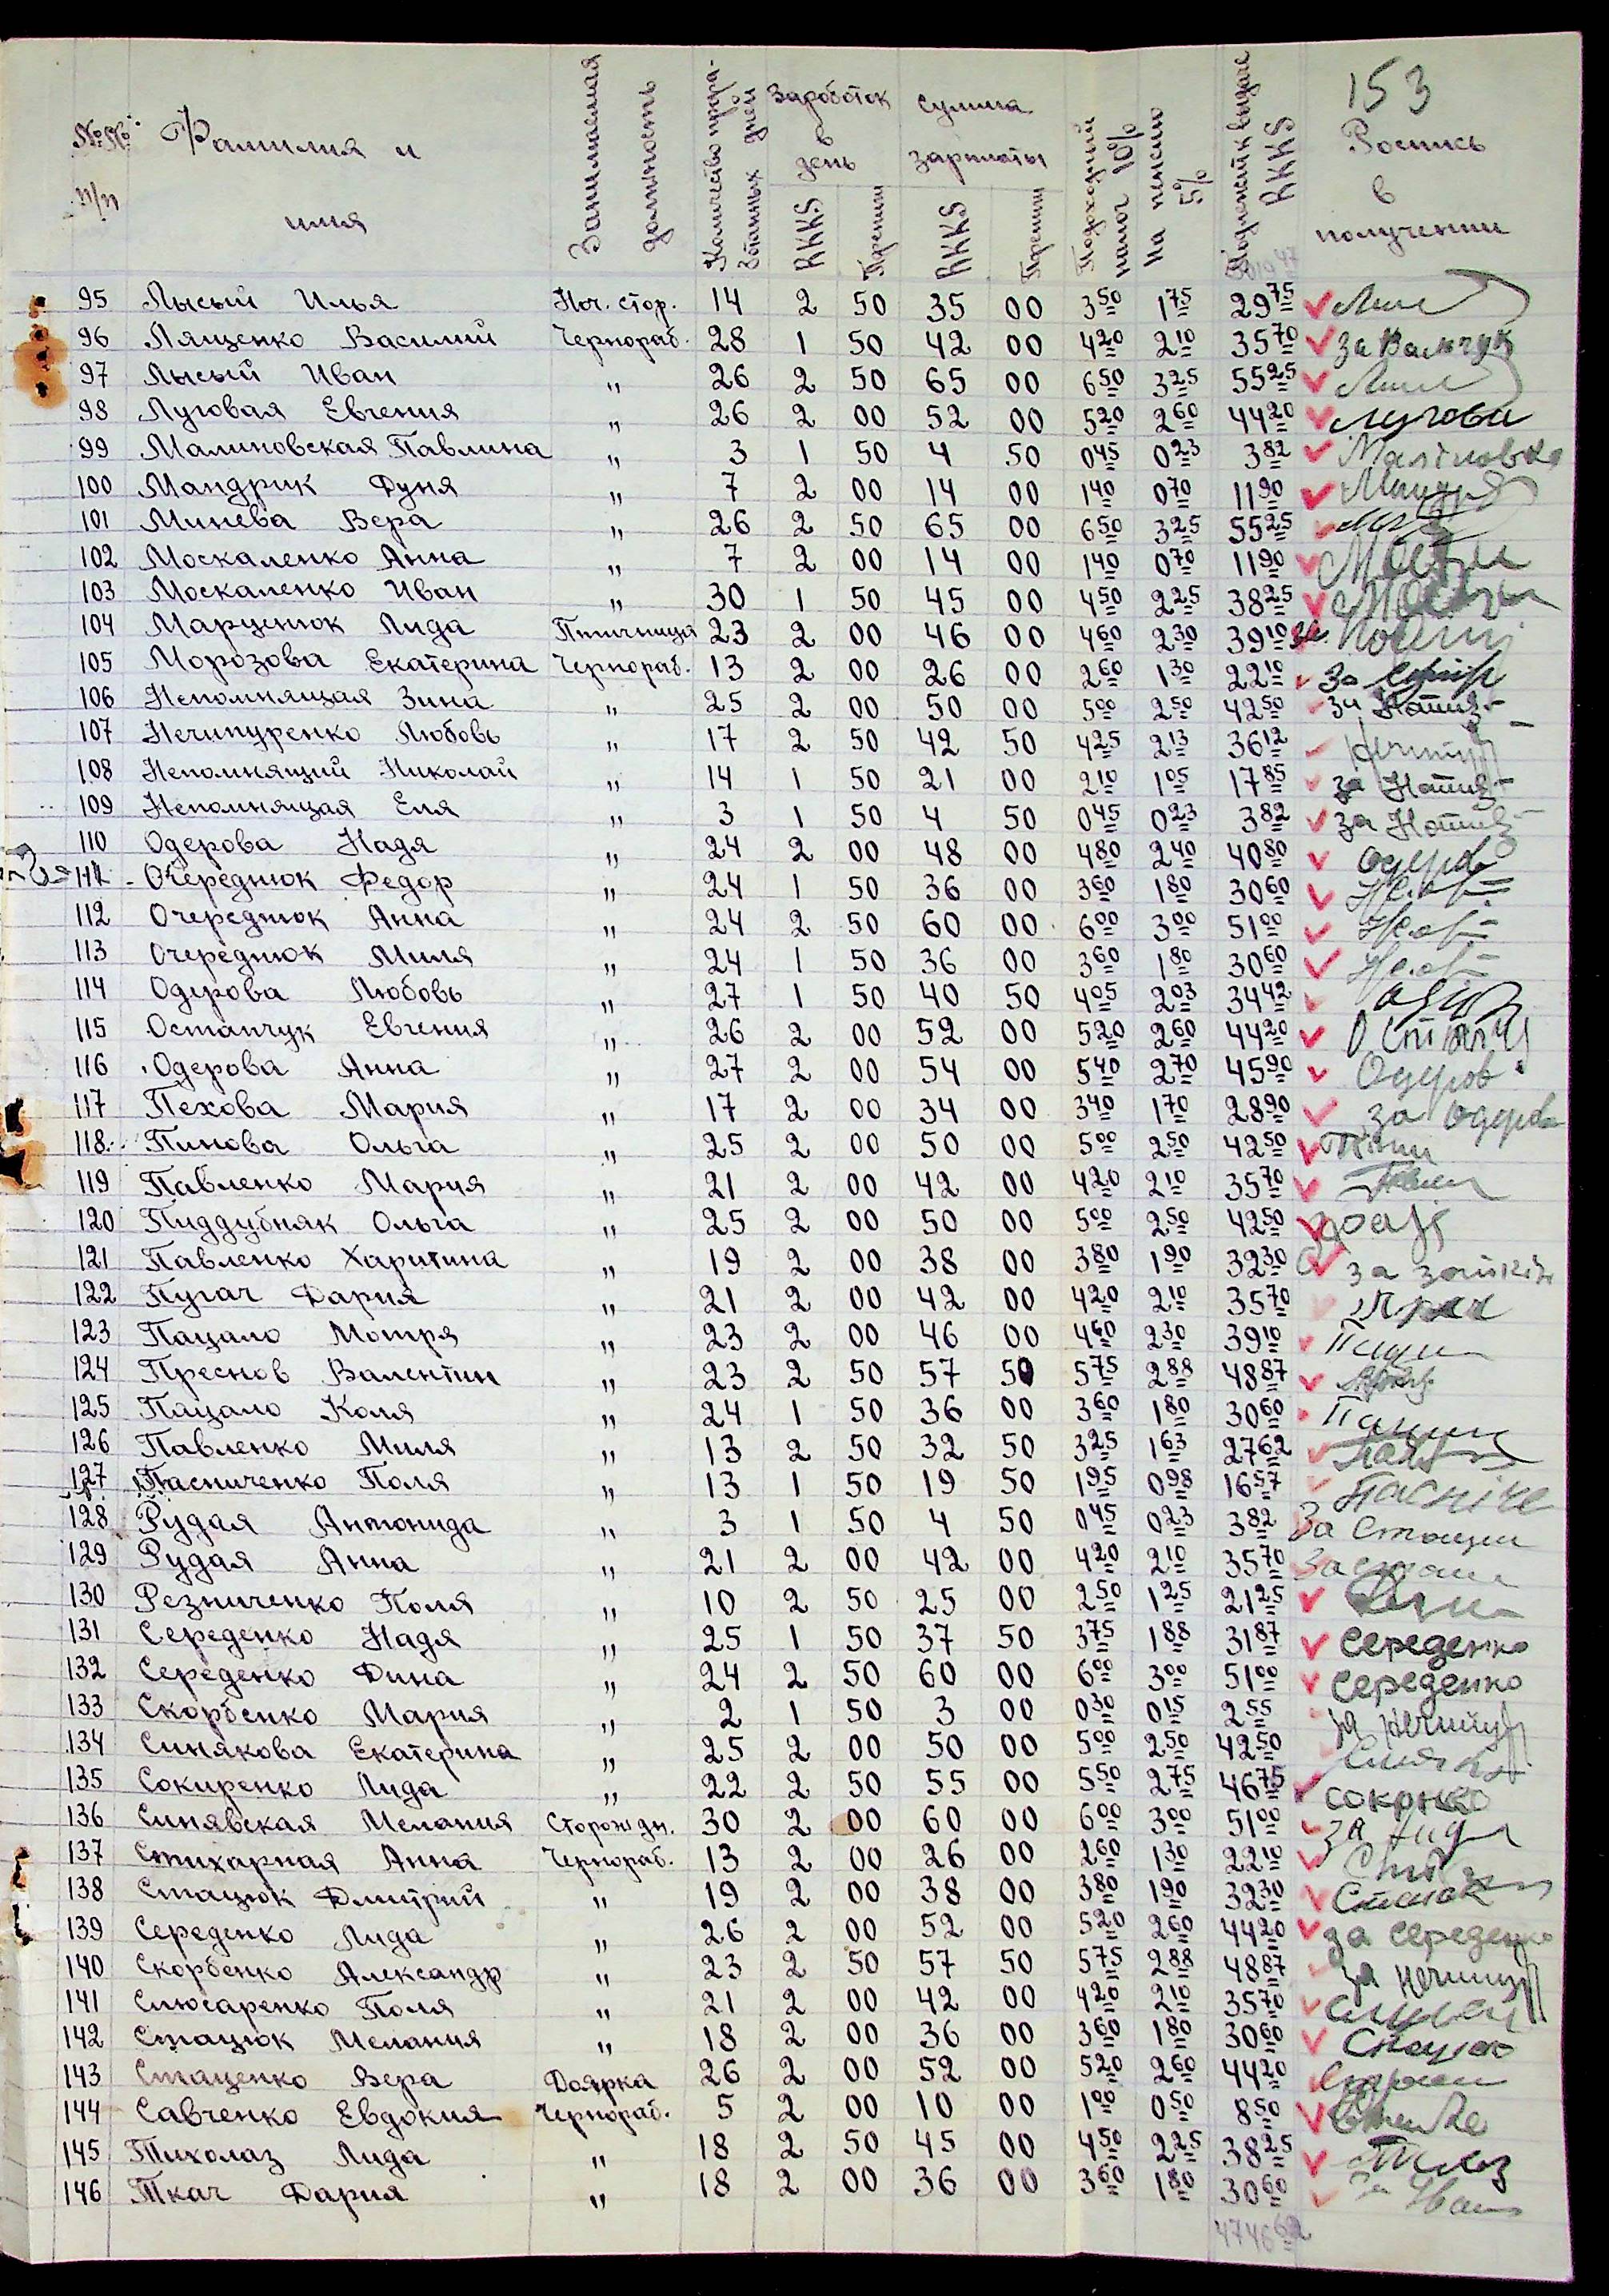 153
№№ п/п Фамилия и имя Занимаемая должность Количество прора-ботанных дней Заработок в день RKKS Премии Сумма зарплаты RKKS Премии Подоходный налог 10% На пенсию 5% Подлежит к выдаче RKKS Роспись в получении
95 Лысый Илья Ноч. стор. 14 2 50 35 00 3 50 1 75 29 75
96 Лященко Василий Чернораб. 28 1 50 42 00 4 20 2 10 35 70 за
97 Лысый Иван " 26 2 50 65 00 6 50 3 25 55 25
98 Луговая Евгения " 26 2 00 52 00 5 20 2 60 44 20
99 Малиновская Павлина " 3 1 50 4 50 0 45 0 23 3 82
100 Мандрик Дуня " 7 2 00 14 00 1 40 0 70 11 90
101 Минева Вера " 26 2 50 65 00 6 50 3 25 55 25
102 Москаленко Анна " 7 2 00 14 00 1 40 0 70 11 90
103 Москаленко Иван " 30 1 50 45 00 4 50 2 25 38 25
104 Марценюк Лида Птичница 23 2 00 46 00 4 60 2 30 39 10
105 Морозова Екатерина Чернораб. 13 2 00 26 00 2 60 1 30 22 10 за
106 Непомнящая Зина " 25 2 00 50 00 5 00 2 50 42 50 за
107 Нечипуренко Любовь " 17 2 50 42 50 4 25 2 13 36 12
108 Непомнящий Николай " 14 1 50 21 00 2 10 1 05 17 85 за
109 Непомнящая Еля " 3 1 50 4 50 0 45 0 23 3 82 за
110 Одерова Надя " 24 2 00 48 00 4 80 2 40 40 80
111 Очереднюк Федор " 24 1 50 36 00 3 60 1 80 30 60
112 Очереднюк Анна " 24 2 50 60 00 6 00 3 00 51 00
113 Очереднюк Миля " 24 1 50 36 00 3 60 1 80 30 60
114 Одерова Любовь " 27 1 50 40 50 4 05 2 03 34 42
115 Остапчук Евгения " 26 2 00 52 00 5 20 2 60 44 20
116 Одерова Анна " 27 2 00 54 00 5 40 2 70 45 90 Одеров
117 Пехова Мария " 17 2 00 34 00 3 40 1 70 28 90 за
118 Пинова Ольга " 25 2 00 50 00 5 00 2 50 42 50
119 Павленко Мария " 21 2 00 42 00 4 20 2 10 35 70
120 Пиддубняк Ольга " 25 2 00 50 00 5 00 2 50 42 50
121 Павленко Харитина " 19 2 00 38 00 3 80 1 90 32 30 за
122 Пугач Дария " 21 2 00 42 00 4 20 2 10 35 70
123 Пацало Мотря " 23 2 00 46 00 4 60 2 30 39 10
124 Преснов Валентин " 23 2 50 57 50 5 75 2 88 48 87
125 Пацало Коля " 24 1 50 36 00 3 60 1 80 30 60
126 Павленко Миля " 13 2 50 32 50 3 25 1 63 27 62
127 Пасниченко Поля " 13 1 50 19 50 1 95 0 98 16 57
128 Рудая Антонида " 3 1 50 4 50 0 45 0 23 3 82 За
129 Рудая Анна " 21 2 00 42 00 4 20 2 10 35 70 За
130 Резниченко Поля " 10 2 50 25 00 2 50 1 25 21 25
131 Середенко Надя " 25 1 50 37 50 3 75 1 88 31 87 Середенко
132 Середенко Дина " 24 2 50 60 00 6 00 3 00 51 00 Середенко
133 Скорбенко Мария " 2 1 50 3 00 0 30 0 15 2 55 за
134 Синякова Екатерина " 25 2 00 50 00 5 00 2 50 42 50
135 Сокиренко Лида " 22 2 50 55 00 5 50 2 75 46 75
136 Синявская Мелания Сторож дн. 30 2 00 60 00 6 00 3 00 51 00 за
137 Стихарная Анна Чернораб. 13 2 00 26 00 2 60 1 30 22 10
138 Стацюк Дмитрий " 19 2 00 38 00 3 80 1 90 32 30
139 Середенко Лида " 26 2 00 52 00 5 20 2 60 44 20 за Середенко
140 Скорбенко Александр " 23 2 50 57 50 5 75 2 88 48 87 за
141 Слюсаренко Поля " 21 2 00 42 00 4 20 2 10 35 70
142 Стацюк Мелания " 18 2 00 36 00 3 60 1 80 30 60
143 Стаценко Вера Доярка 26 2 00 52 00 5 20 2 60 44 20
144 Савченко Евдокия Чернораб. 5 2 00 10 00 1 00 0 50 8 50
145 Тихолаз Лида " 18 2 50 45 00 4 50 2 25 38 25
146 Ткач Дария " 18 2 00 36 00 3 60 1 80 30 60